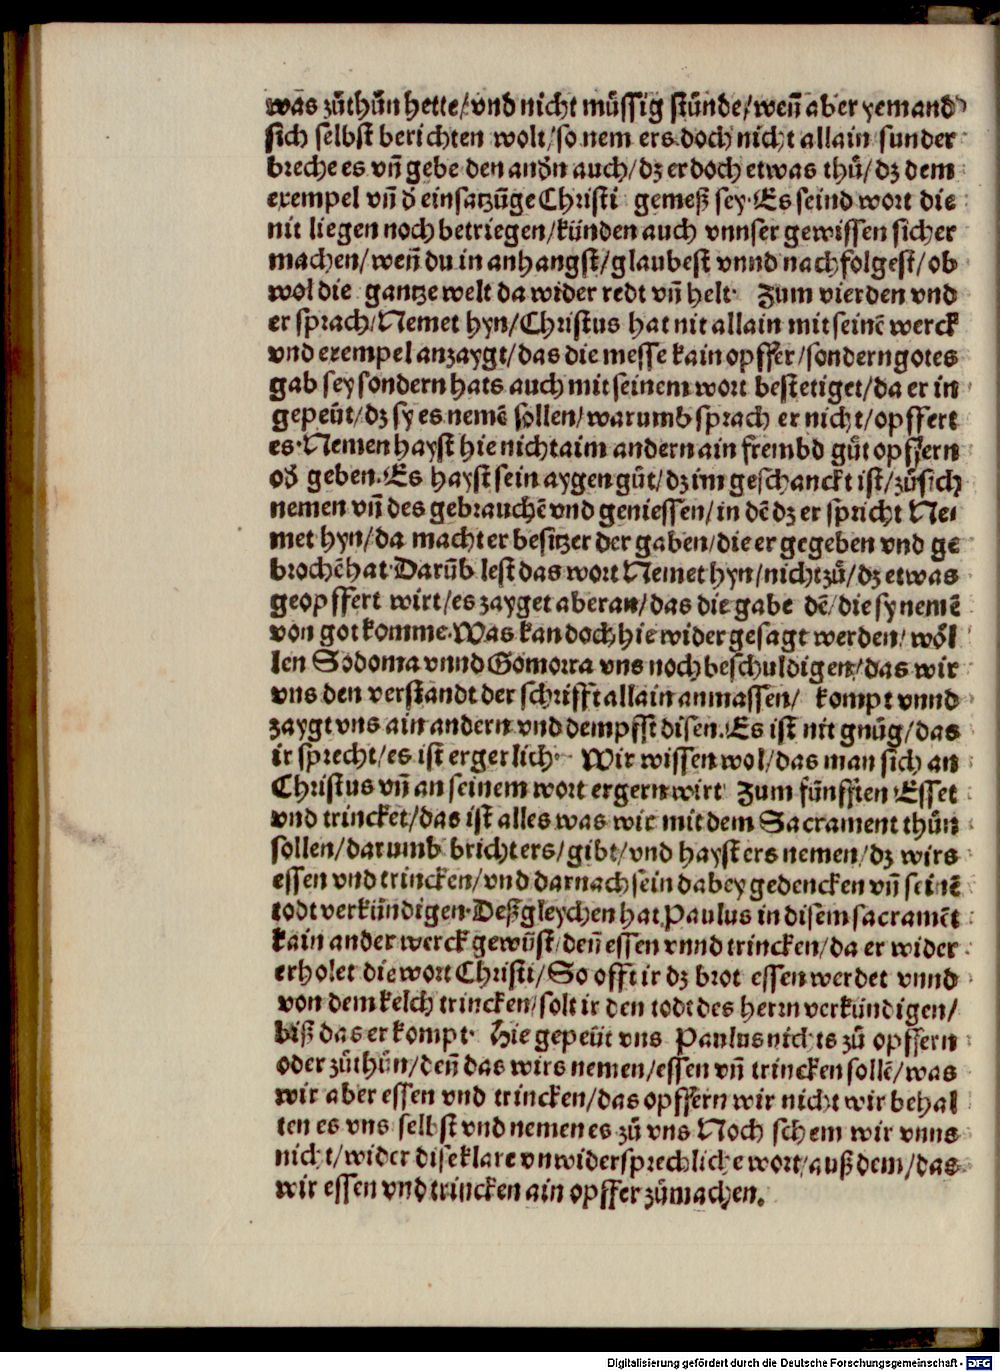 was zůthůn hette/vnd nicht müssig stünde/weñ aber yemand
sich selbst berichten wolt/so nem ers doch nicht allain sunder
breche es vñ gebe den andn auch/dz er doch etwas thů/dz dem
exempel vñ d einsatzũge Christi gemeß sey. Es seind wort die
nit liegen noch betriegen/künden auch vnnser gewissen sicher
machen/weñ du in anhangst/glaubest vnnd nachfolgest/ob
wol die gantze welt da wider redt vñ helt. Zum vierden vnd
er sprach/Nemet hyn/Christus hat nit allain mit seinē werck
vnd exempel anzaygt/das die messe kain opffer/sondern gotes
gab sey sondern hats auch mit seinem wort bestetiget/da er in
gepeüt/dz sy es nemē sollen/warumb sprach er nicht/opffert
es. Nemen hayst hie nicht aim andern ain frembd gůt opffern
od geben. Es hayst sein aygen gůt/dz im geschanckt ist/zů sich
nemen vñ des gebrauchē vnd geniessen/in dē dz er spricht Ne
met hyn/da macht er besitzer der gaben/die er gegeben vnd ge
brochē hat. Darũb lest das wort Nemet hyn/nicht zů/dz etwas
geopffert wirt/es zayget aber an/das die gabe dē/die sy nemē
von got komme. Was kan doch hie wider gesagt werden/wöl
len Sodoma vnnd Gomorra vns noch beschuldigen/das wir
vns den verstandt der schrifft allain anmassen/ kompt vnnd
zaygt vns ain andern vnd dempfft disen. Es ist nit gnůg/das
ir sprecht/es ist ergerlich. Wir wissen wol/das man sich an
Christus vñ an seinem wort ergern wirt Zum fünfften Esset
vnd trincket/das ist alles was wir mit dem Sacrament thůn
sollen/darumb bricht ers/gibt/vnd hayst ers nemen/dz wirs
essen vnd trincken/vnd darnach sein dabey gedencken vñ seinē
todt verkündigen. Deßgleychen hat Paulus in disem sacramēt
kain ander werck gewüst/deñ essen vnnd trincken/da er wider
erholet die wort Christi/So offt ir dz brot essen werdet vnnd
von dem kelch trincken/solt ir den todt des herrn verkündigen/
biß das er kompt. Hie gepeüt vns Paulus nichts zů opffern
oder zůthůn/deñ das wirs nemen/essen vñ trincken sollē/was
wir aber essen vnd trincken/das opffern wir nicht wir behal
ten es vns selbst vnd nemen es zů vns Noch schem wir vnns
nicht/wider dise klare vnwidersprechliche wort/auß dem/das
wir essen vnd trincken ain opffer zůmachen.
Digitalisierung gefördert durch die Deutsche Forschungsgemeinschaft - DFG